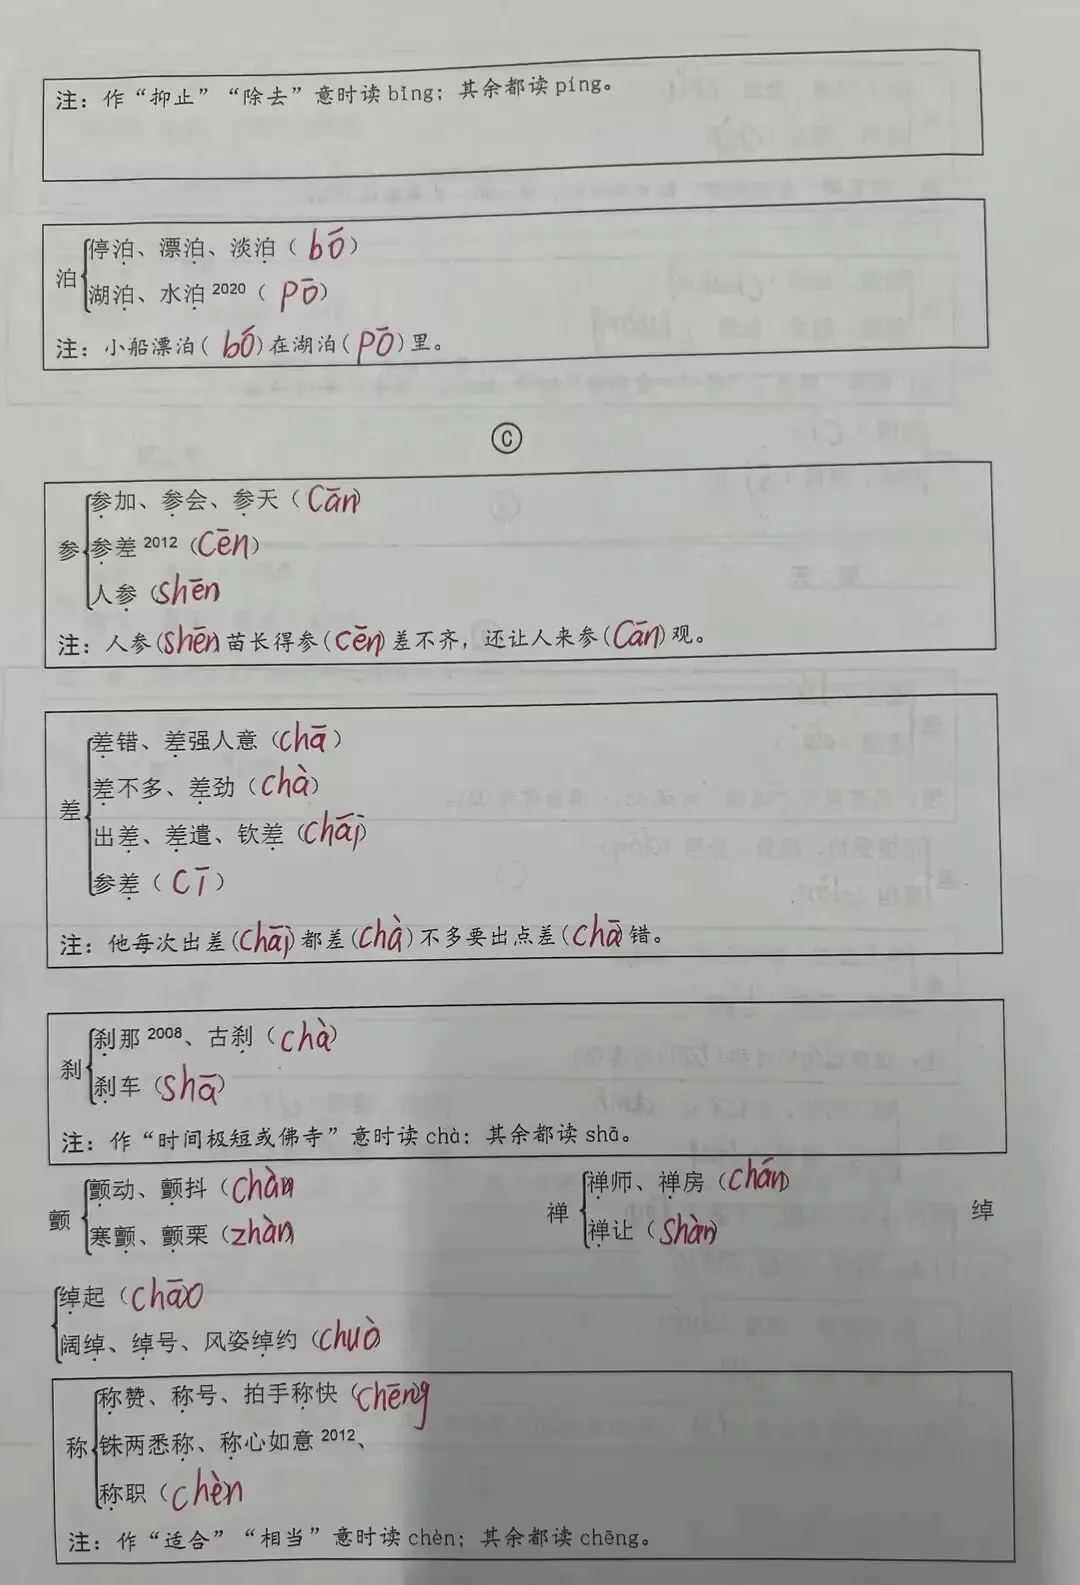 注：作“抑止”“除去”意时读 bǐng；其余都读 píng。
泊
停泊、漂泊、淡泊（bó）
湖泊、水泊 2020（pō）
注：小船漂泊（bó）在湖泊（pō）里。
C
参
参加、参会、参天（cān）
参差 2012（cēn）
人参（shēn）
注：人参（shēn）苗长得参（cēn）差不齐，还让人来参（cān）观。
差
差错、差强人意（chā）
差不多、差劲（chà）
出差、差遣、钦差（chāi）
参差（cī）
注：他每次出差（chāi）都差（chà）不多要出点差（chā）错。
刹
刹那 2008、古刹（chà）
刹车（shā）
注：作“时间极短或佛寺”意时读 chà；其余都读 shā。
颤
颤动、颤抖（chàn）
寒颤、颤栗（zhàn）
禅
禅师、禅房（chán）
禅让（shàn）
绰
绰起（chāo
阔绰、绰号、风姿绰约（chuò）
称
称赞、称号、拍手称快（chēng
铢两悉称、称心如意 2012、
称职（chèn
注：作“适合”“相当”意时读 chèn；其余都读 chēng。